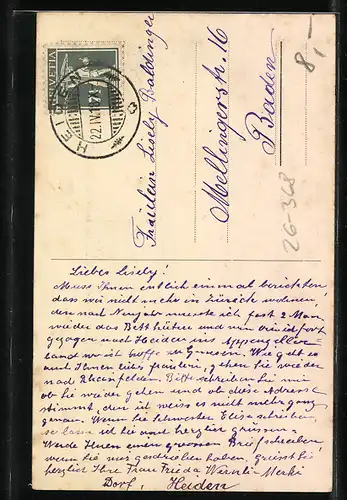 HELVETIA
HEIDEN
22.IV.
8,-
Fräulein Lisely Baldinger
Mellingerstr. 16
Baden
26-368
Liebes Lisely!
Muss Ihnen entlich einmal berichten
dass wir nicht mehr in Zürich wohnen,
den nach Neujahr musste ich fast 2 Mon.
wieder das Bett hüten und nun sind fort
gezogen nach Heiden im Appenzeller-
land wo ist hoffe zu Genesen. Wie geht es
auch Ihnen liebes fräulein, gehen Sie wieder
nach Rheinfelden. Bitte schreiben Sie mir
ob Sie wieder gehen und ob diese Adresse
stimmt, den ich weiss es nicht mehr ganz
genau. Wenn Sie Schwester Elise schreiben,
so lasse ich Sie auch herzlich grüssen.
Werde Ihnen einen grossen Brief schreiben
wenn Sie mir geschrieben haben, grüsst Sie
herzlich Ihre Frau Frieda Wernli-Merki
Dorf, Heiden